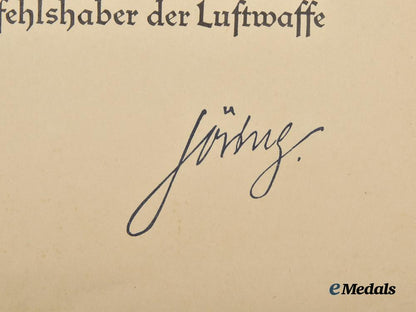 fehlshaber der Luftwaffe
Göring.
eMedals